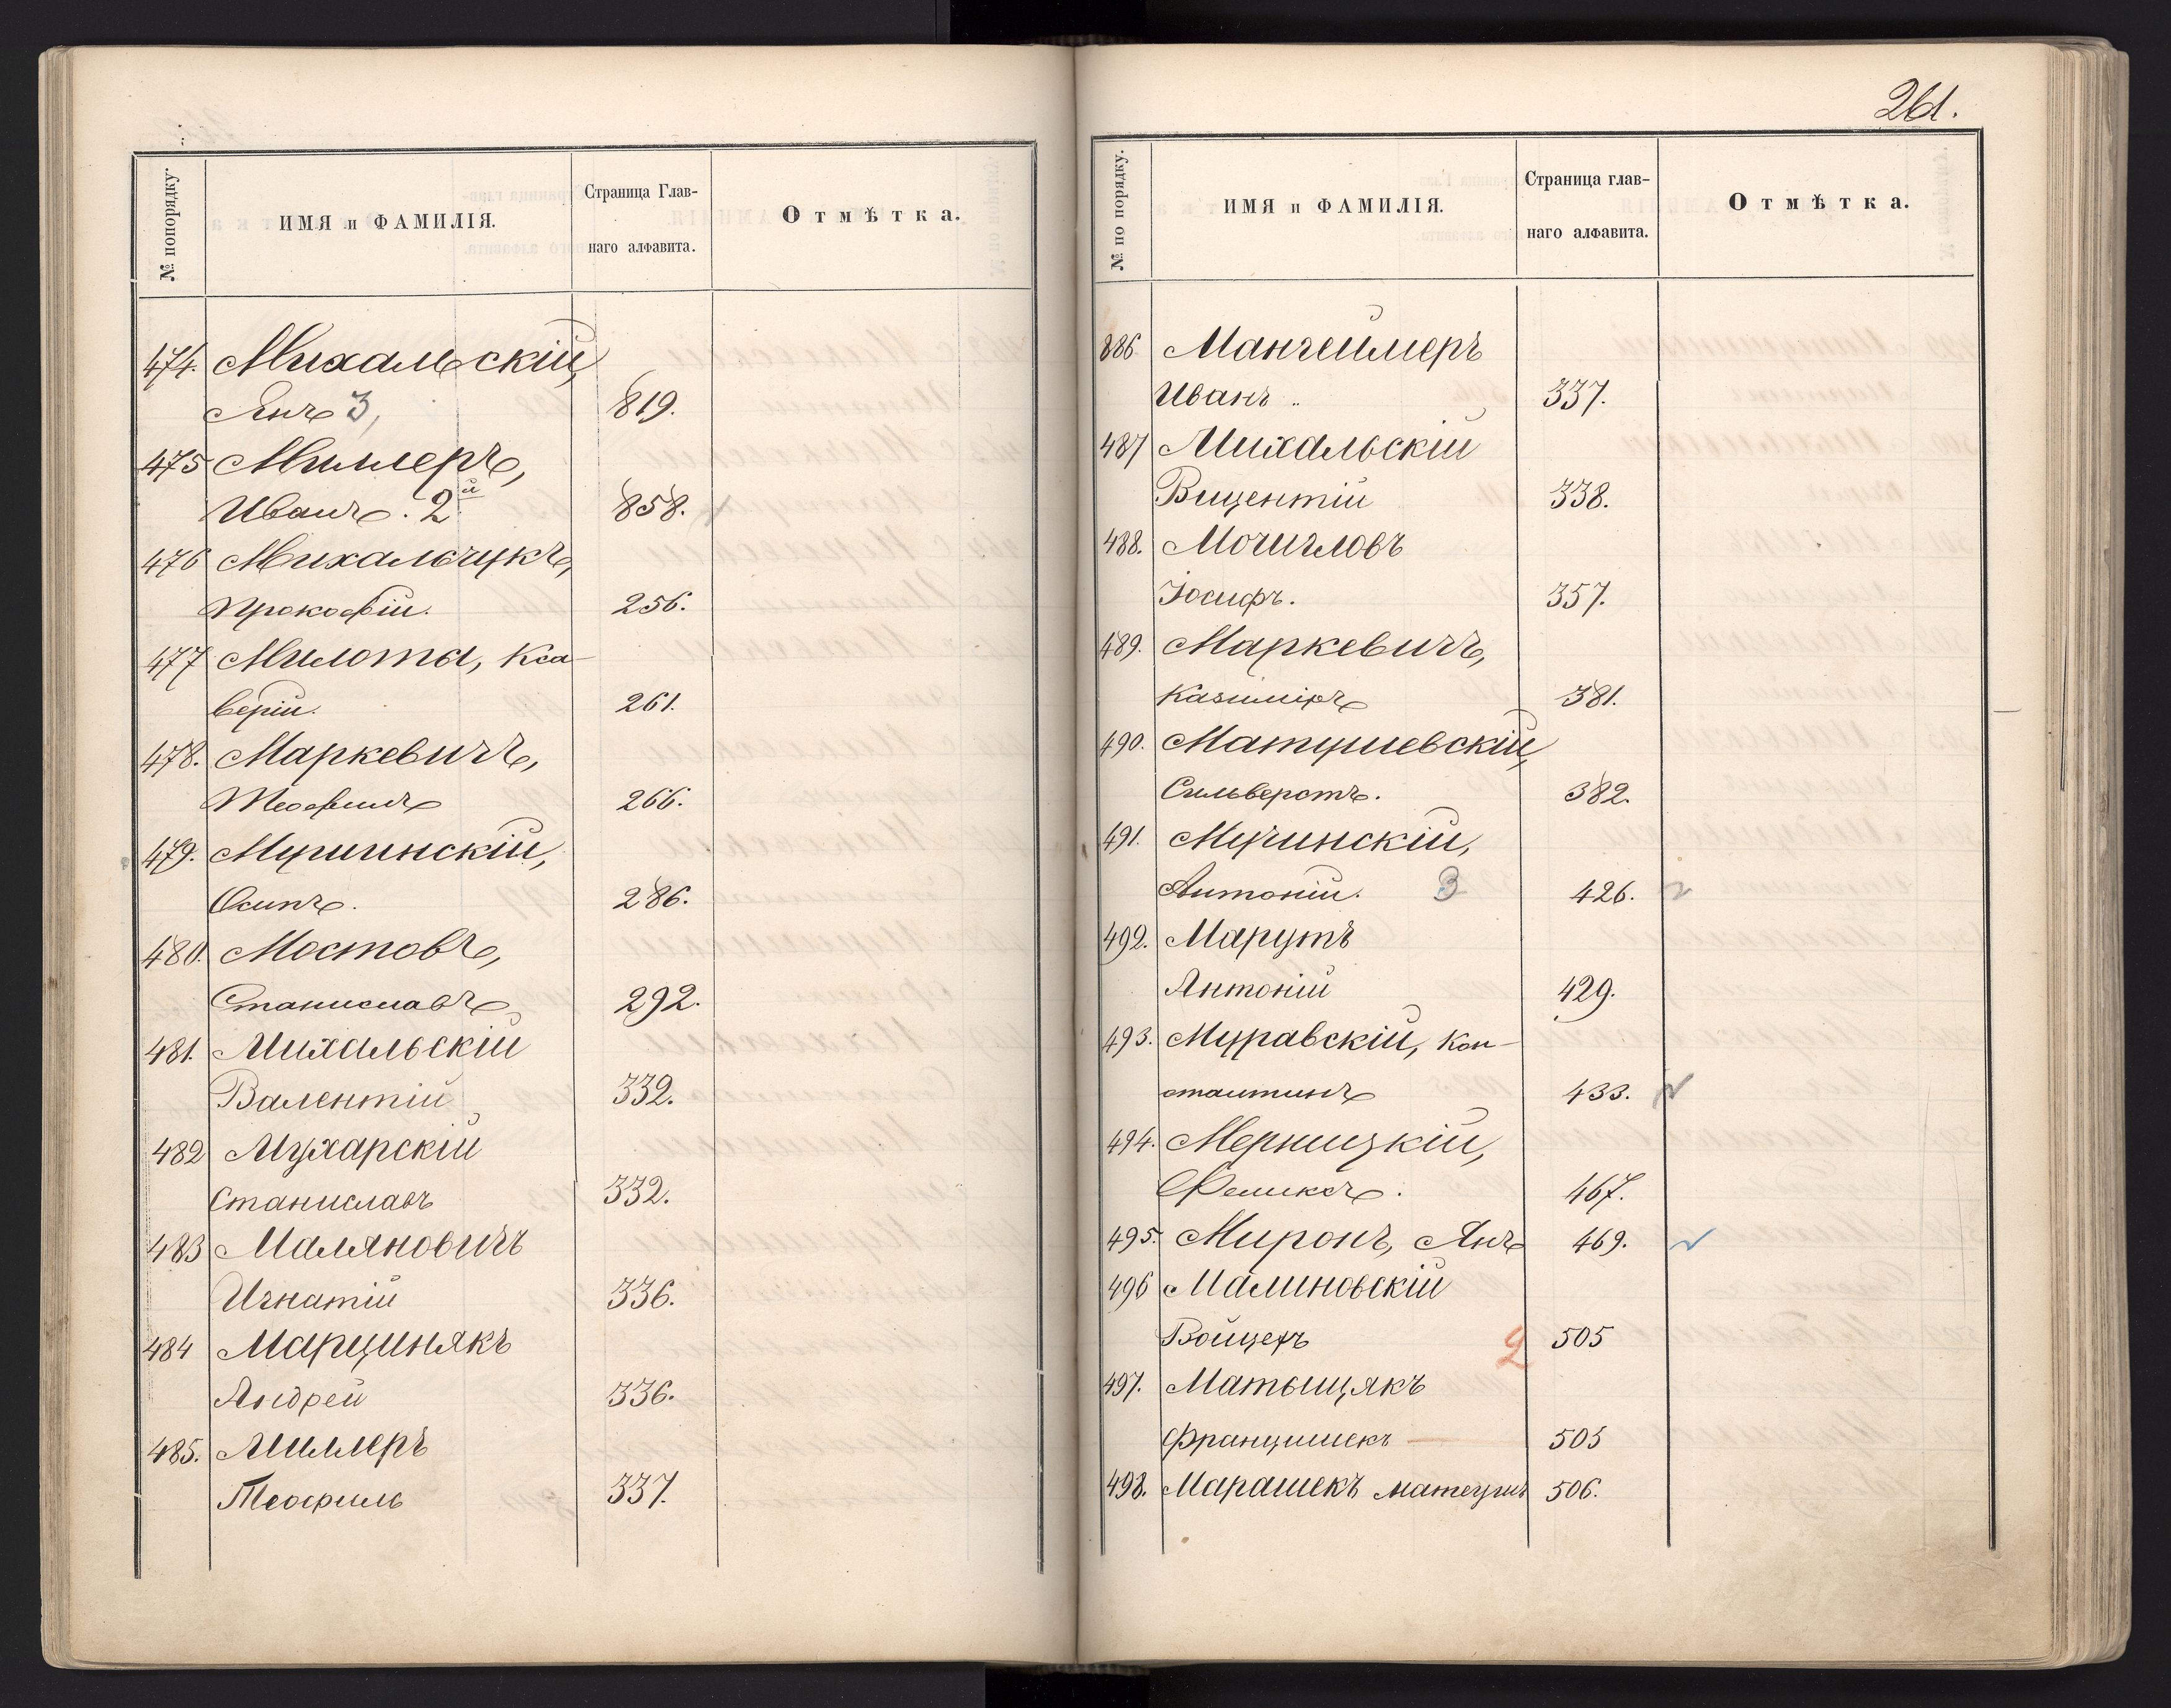 № попорядку.
ИМЯ и ФАМИЛІЯ.
Страница Глав-
наго алфавита.
Отмѣтка.
474. Михальскій,
Янъ 3, 819.
475 Миллеръ,
Иванъ. 2й 858.
476 Михальчукъ,
Прокофій. 256.
477 Милоты, Кса-
верій. 261.
478. Маркевичъ,
Теофилъ 266.
479. Мушинскій,
Осипъ. 286.
480. Мостовъ,
Станиславъ 292.
481. Михальскій
Валентій 332.
482 Мухарскій
Станиславъ 332.
483 Маляновичъ
Игнатій 336.
484 Марцинякъ
Андрей 336.
485. Миллеръ
Теофиль 337.
261.
№ по порядку.
ИМЯ и ФАМИЛІЯ.
Страница глав-
наго алфавита.
Отмѣтка.
886 Мангеймеръ
Иванъ .. 337.
487 Михальскій
Вицентій 338.
488. Мочигловъ
Іосифъ. 357.
489. Маркевичъ,
Казиміръ 381.
490. Матушевскій,
Сильверстъ. 382.
491. Мучинскій,
Антоній. 3 426.
492. Марутъ
Антоній 429.
493. Муравскій, Кон-
стантинъ 433.
494. Мерницкій,
Феликсъ. 467.
495. Миронъ, Янъ 469.
496 Малиновскій
Войцехъ 2 505
497. Матыщякъ
Францишекъ 505
498. Марашекъ 506.